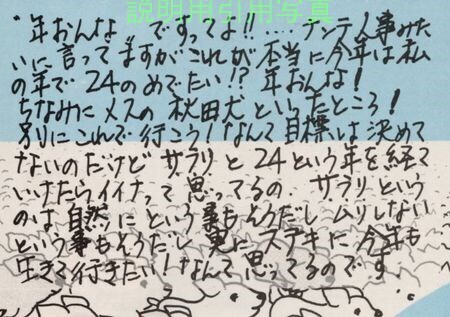 説明用引用写真
"年おんな"ですってよ!!....ナンテ人事みた
いに言ってますがこれが本当に今年は私
の年で24のめでたい!?年おんな!
ちなみにメスの秋田犬といったところ!
別にこれで行こう!なんて目標は決めて
ないのだけどサラリと24という年を経て
いけたらイイナって思ってるの サラリという
のは自然にという事もそうだしムリしない
という事もそうだし 更にステキに今年も
生きて行きたい!なんて思ってるのです